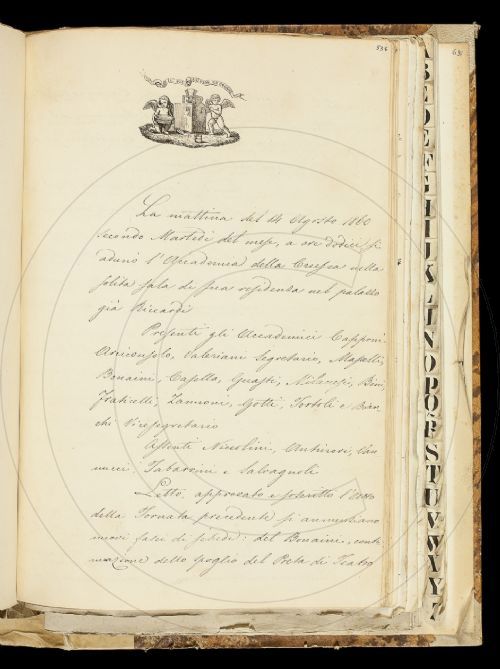 534
La mattina del 14 Agosto 1860
secondo Martedì del mese, a ore dodici si
adunò l'Accademia della Crusca nella
solita sala di sua residenza nel palazzo
già Riccardi
Presenti gli Accademici Capponi
Arciconsolo, Valeriani Segretario, Maselli,
Bonaini, Casella, Guasti, Milanesi, Bini,
Fraticelli, Zannoni, Gotti, Tortoli e Bian
chi Vicesegretario
Assenti Niccolini, Antinori, Van
nucci, Tabarrini e Salvagnoli
Letto, approvato e
della Tornata precedente si annunziano
nuovi fasci di schede: del Bonaini, conti
nuazione dello spoglio del Prete di Teatro
63
A
B
C
D
E
F
G
H
I
J
K
L
M
N
O
P
Q
R
S
T
U
V
W
X
Y
Z